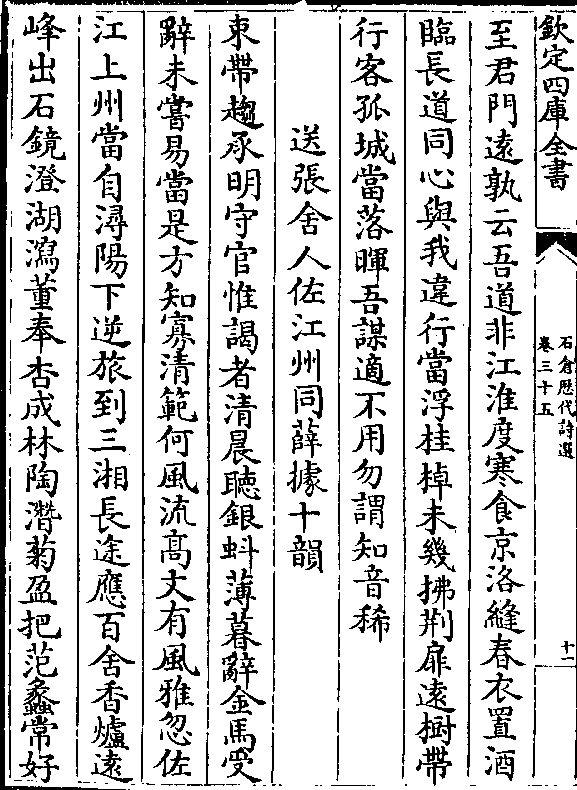 欽定四庫全書
石倉歴代詩選
卷三十五
十一
至君門遠孰云吾道非江淮度寒食京洛縫春衣置酒
臨長道同心與我違行當浮桂棹未幾拂荆扉遠樹帶
行客孤城當落暉吾謀適不用勿謂知音稀
送張舍人佐江州同薛據十韻
束帶趨承明守官惟謁者清晨聴銀蚪薄暮辭金馬受
辭未嘗易當是方知寡清範何風流髙文有風雅忽佐
江上州當自潯陽下逆旅到三湘長途應百舍香爐逺
峰出石鏡澄湖瀉董奉杏成林陶濳菊盈把范蠡常好